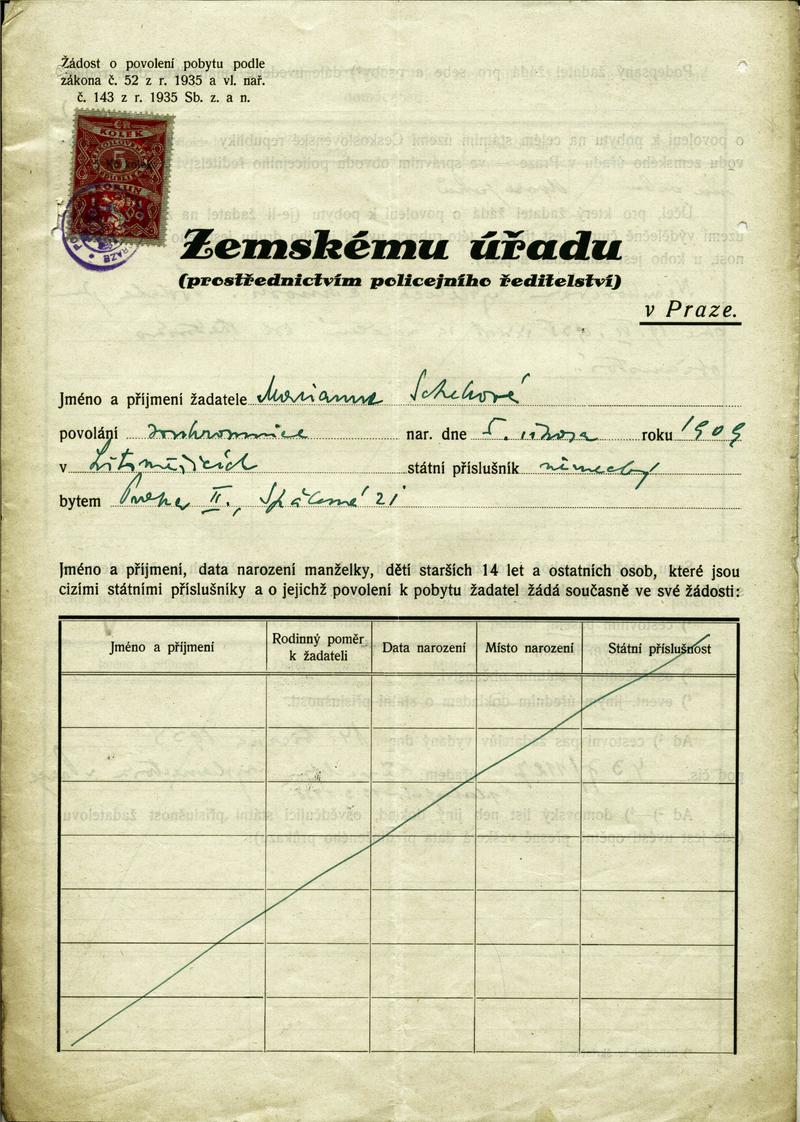 Žádost o povolení pobytu podle
zákona č. 52 z r. 1935 a vl. nař.
č. 143 z r. 1935 Sb. z. a n.
KOLEK
Zemskému úřadu
(prostřednictvím policejního ředitelství)
v Praze.
Jméno a příjmení žadatele Marianne Scheková
povolání soukromnice nar. dne 5. února roku 1909
v Litoměřicích státní příslušník německý
bytem Praha II., Spálená 21
Jméno a příjmení, data narození manželky, dětí starších 14 let a ostatních osob, které jsou
cizími státními příslušníky a o jejichž povolení k pobytu žadatel žádá současně ve své žádosti:
Jméno a příjmení Rodinný poměr k žadateli Data narození Místo narození Státní příslušnost